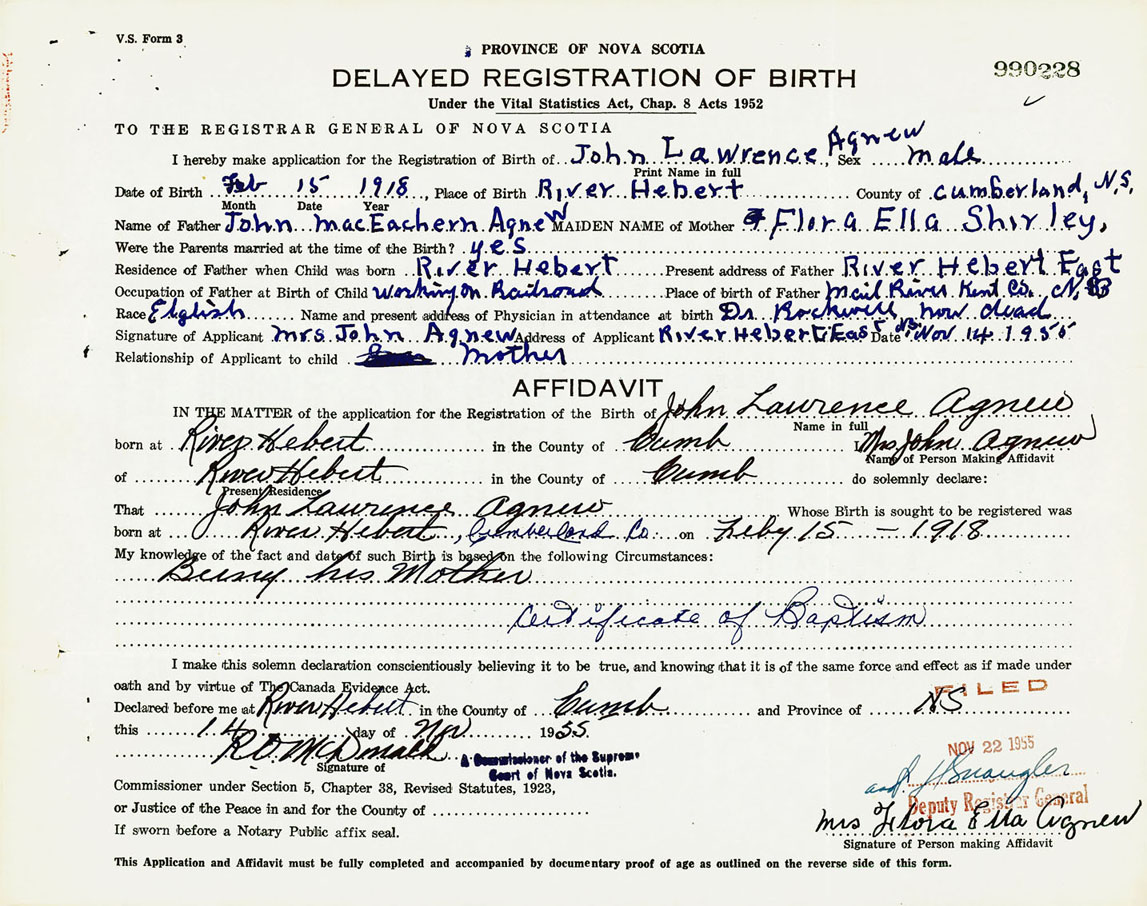 V.S. Form 3
PROVINCE OF NOVA SCOTIA
990228
DELAYED REGISTRATION OF BIRTH
Under the Vital Statistics Act, Chap. 8 Acts 1952
TO THE REGISTRAR GENERAL OF NOVA SCOTIA
I hereby make application for the Registration of Birth of John Lawrence Agnew, Sex male
Print Name in full
Date of Birth Feb 15 1918, Place of Birth River Hebert County of Cumberland, N.S.
Month Date Year
Name of Father John MacEachern Agnew MAIDEN NAME of Mother Flora Ella Shirley,
Were the Parents married at the time of the Birth? yes
Residence of Father when Child was born River Hebert Present address of Father River Hebert East
Occupation of Father at Birth of Child Working on Railroad Place of birth of Father Mail River Kent Co. N.B
Race Elglish Name and present address of Physician in attendance at birth Dr Rockwell now dead
Signature of Applicant Mrs John Agnew Address of Applicant River Hebert East NS Date Nov 14 1955
Relationship of Applicant to child Mother
AFFIDAVIT
IN THE MATTER of the application for the Registration of the Birth of John Lawrence Agnew
Name in full
born at River Hebert in the County of Cumb I Mrs John Agnew
Name of Person Making Affidavit
of River Hebert in the County of Cumb do solemnly declare:
Present Residence
That John Lawrence Agnew Whose Birth is sought to be registered was
born at River Hebert, Cumberland Co. on Feby 15 - 1918
My knowledge of the fact and date of such Birth is based on the following Circumstances:
Being his Mother
Certificate of Baptism
I make this solemn declaration conscientiously believing it to be true, and knowing that it is of the same force and effect as if made under
oath and by virtue of The Canada Evidence Act.
FILED
Declared before me at River Hebert in the County of Cumb and Province of NS
this 14 day of Nov 1955.
NOV 22 1955
R.O. McDonald
A Commissioner of the Supreme
Court of Nova Scotia.
Signature of
Commissioner under Section 5, Chapter 38, Revised Statutes, 1923,
Deputy Registrar General
or Justice of the Peace in and for the County of
Mrs Flora Ella Agnew
If sworn before a Notary Public affix seal.
Signature of Person making Affidavit
This Application and Affidavit must be fully completed and accompanied by documentary proof of age as outlined on the reverse side of this form.